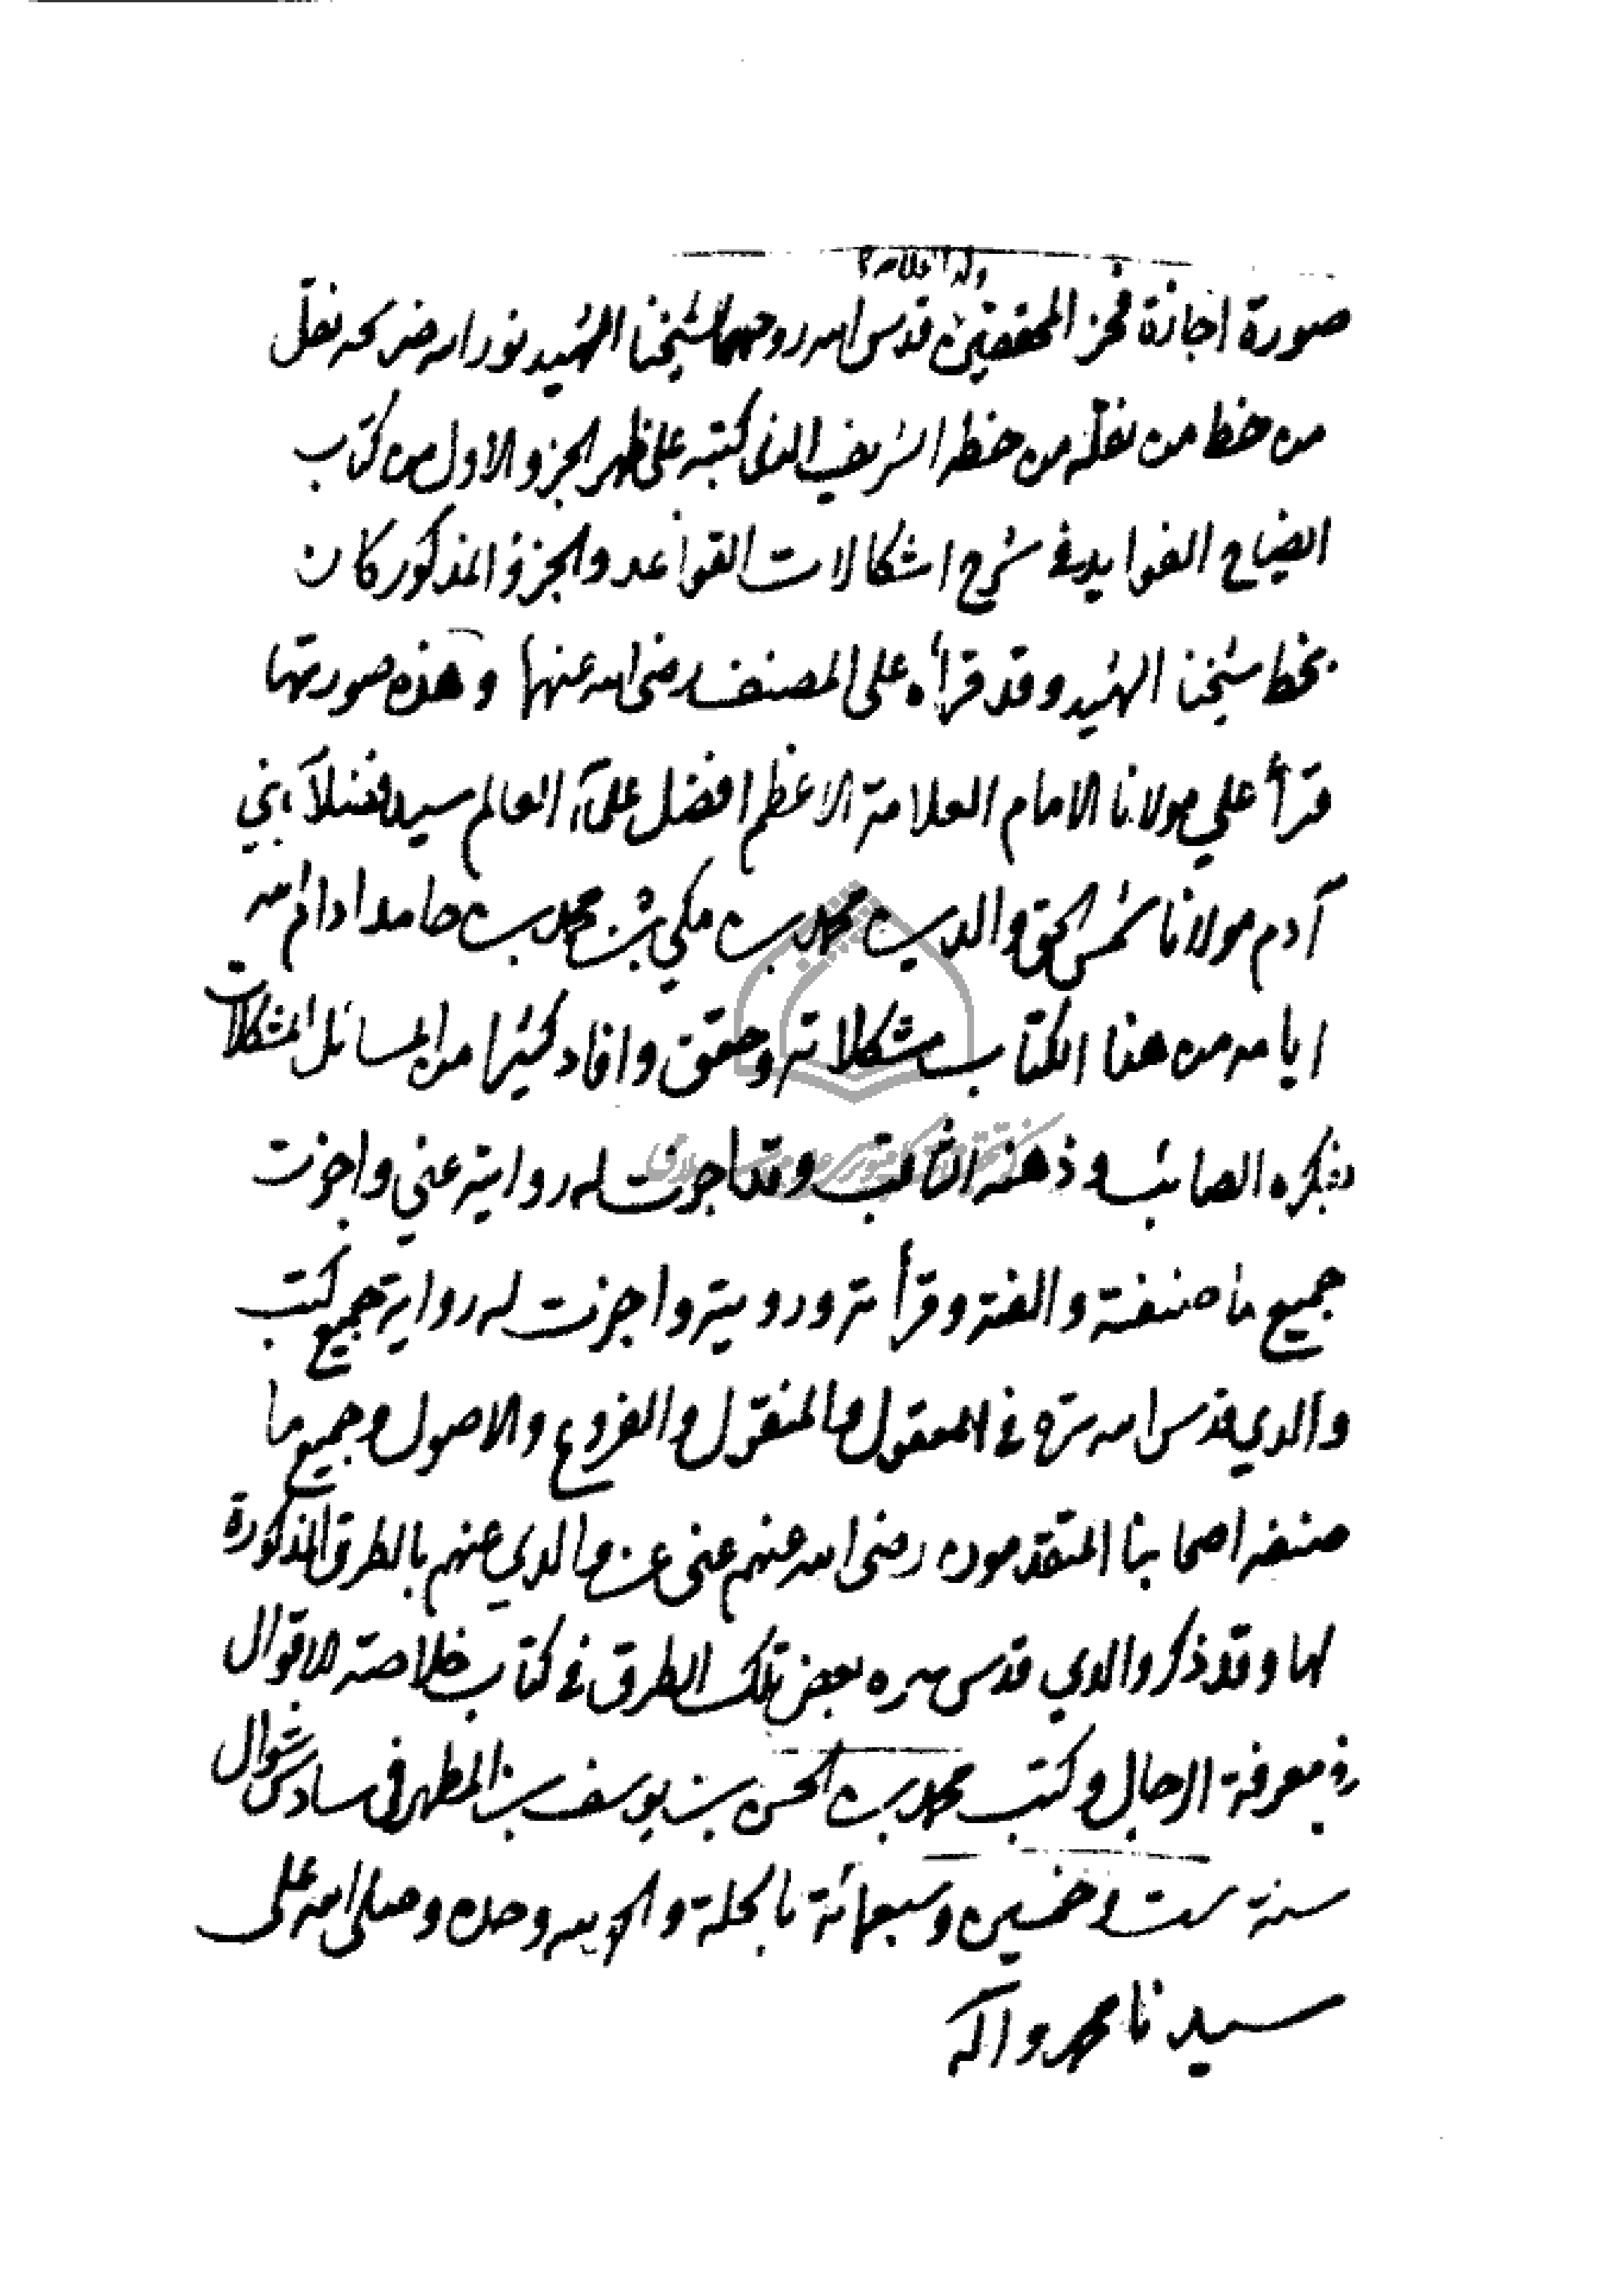 ولد العلامة
صورة اجازة فخر المحققين قدس الله روحهما لشيخنا الشهيد نور الله ضريحه نقل
من خط من نقله من خطه الشريف الذى كتبه على ظهر الجزو الاول من كتاب
ايضاح الفوايد في شرح اشكالات القواعد والجزؤ المذكور كان
بخط شيخنا الشهيد وقد قرأه على المصنف رضى الله عنهما وهذه صورتها
قرأ علي مولانا الامام العلامة الاعظم افضل علمآء العالم سيد فضلآء بني
آدم مولانا شمس الحق والدين محمد بن مكي بن محمد بن حامد ادام الله
ايامه من هذا الكتاب مشكلاته وحقق وافاد كثيرا من المسائل المشكلات
بفكره الصائب وذهنه الثاقب وقد اجزت له روايته عني واجزت
جميع ما صنفته والفته وقرأته ورويته واجزت له رواية جميع كتب
والدي قدس الله سره في المعقول والمنقول والفروع والاصول وجميع ما
صنفه اصحابنا المتقدمون رضى الله عنهم عنى عن والدي عنهم بالطرق المذكورة
لها وقد ذكر والدي قدس سره بعض تلك الطرق في كتاب خلاصة الاقوال
في معرفة الرجال وكتب محمد بن الحسن بن يوسف بن المطهر في سادس شوال
سنة ست وخمسين وسبعمائة بالحلة والحمد لله وحده وصلى الله على
سيدنا محمد واله